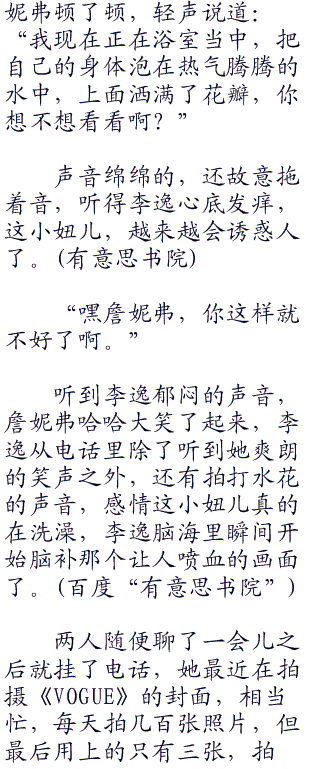 妮弗顿了顿，轻声说道：
“我现在正在浴室当中，把
自己的身体泡在热气腾腾的
水中，上面洒满了花瓣，你
想不想看看啊？”
声音绵绵的，还故意拖
着音，听得李逸心底发痒，
这小妞儿，越来越会诱惑人
了。(有意思书院)
“嘿詹妮弗，你这样就
不好了啊。”
听到李逸郁闷的声音，
詹妮弗哈哈大笑了起来，李
逸从电话里除了听到她爽朗
的笑声之外，还有拍打水花
的声音，感情这小妞儿真的
在洗澡，李逸脑海里瞬间开
始脑补那个让人喷血的画面
了。(百度“有意思书院”)
两人随便聊了一会儿之
后就挂了电话，她最近在拍
摄《VOGUE》的封面，相当
忙，每天拍几百张照片，但
最后用上的只有三张，拍